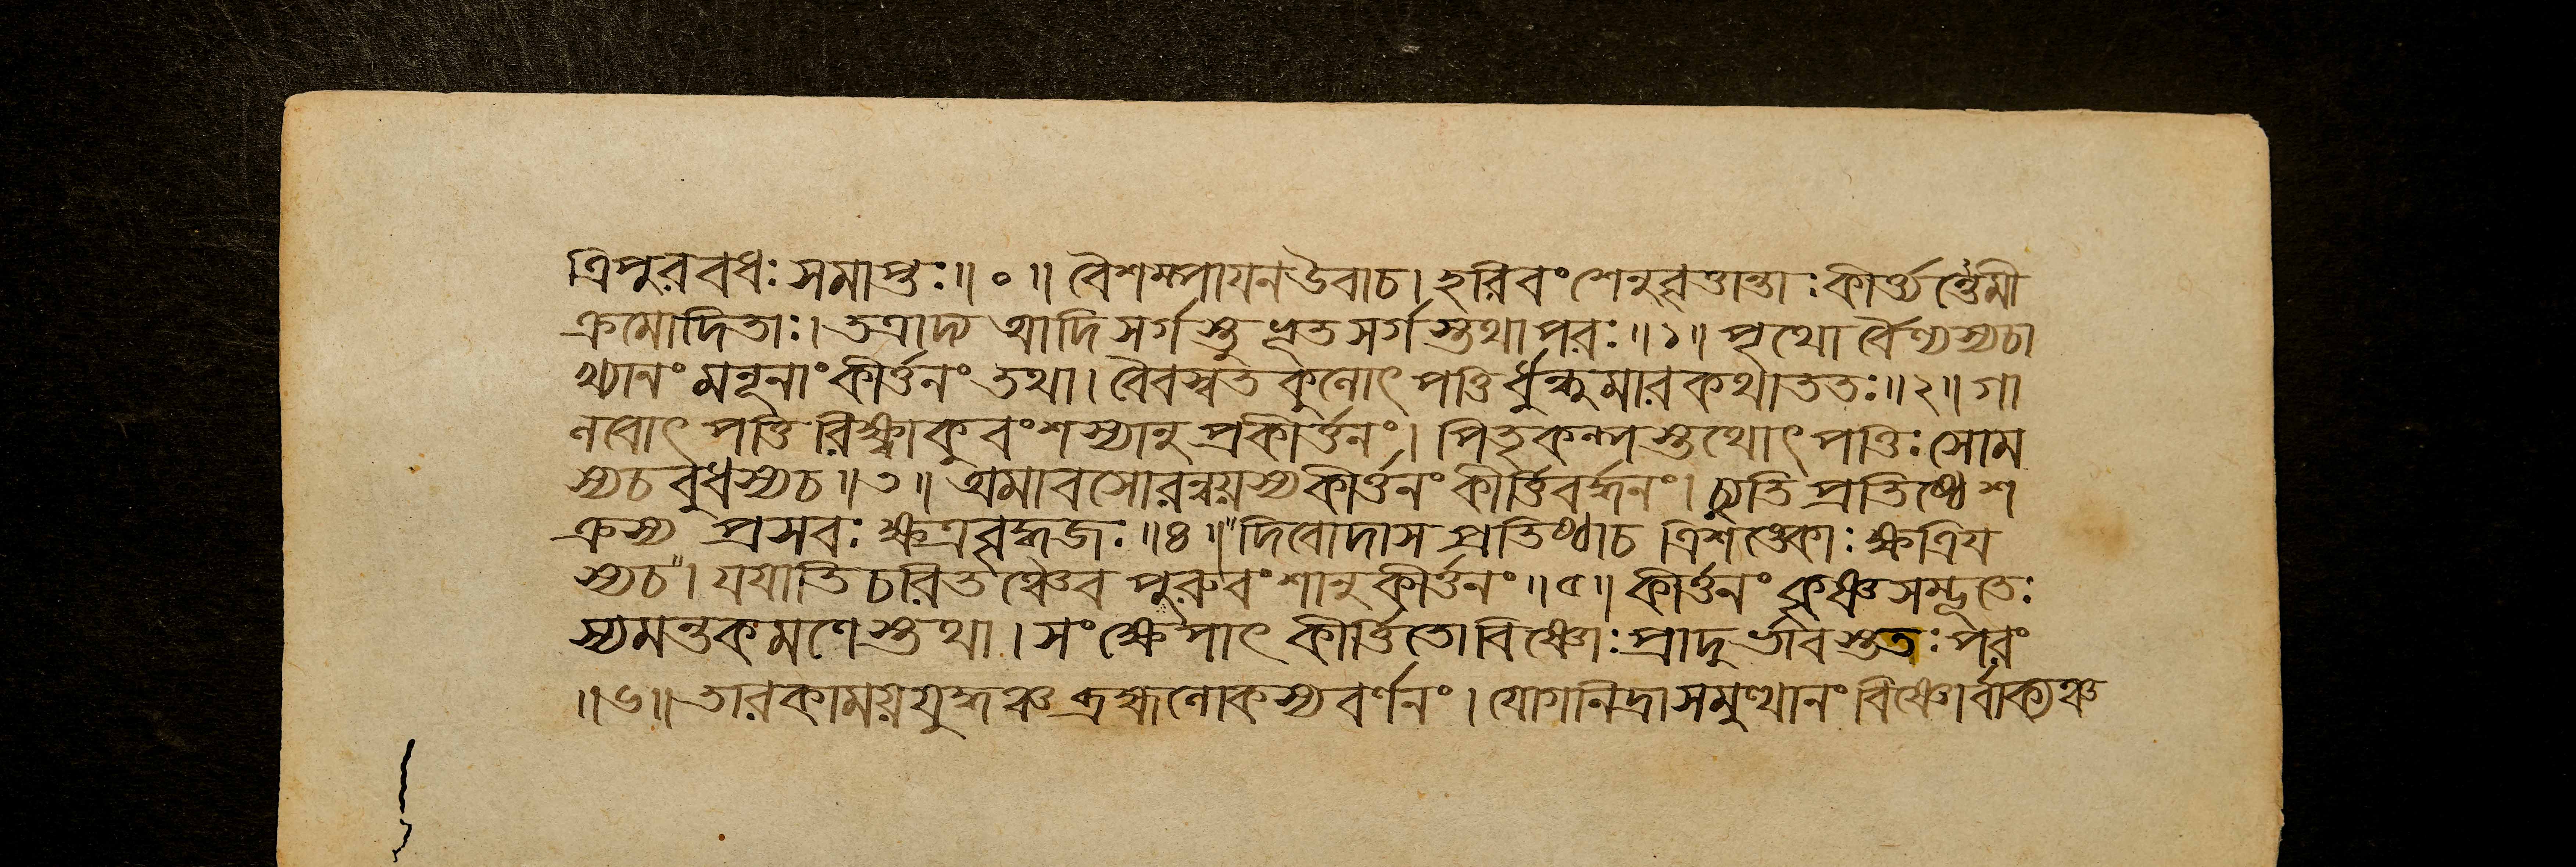 ত্রিপুরবধঃ সমাপ্তঃ॥০॥ বৈশম্পায়ন উবাচ। হরিবংশেনুবৃত্তান্তাঃ কীর্ত্যন্তেমী
ক্রমোদিতাঃ। তত্রাদ্য আদিসর্গস্তু ভূতসর্গস্তথাপরঃ॥১॥ পৃথোর্বৈণ্যস্যচা
খ্যানং মনূনাং কীর্ত্তনং তথা। বৈবস্বতকুলোৎপত্তির্ধুন্ধুমারকথাততঃ॥২॥ গা
লবোৎপত্তিরিক্ষ্বাকুবংশস্যানুপ্রকীর্ত্তনং। পিতৃকল্পস্তথোৎপত্তিঃ সোম
স্যচ বুধস্যচ॥৩॥ অমাবসোরন্বয়স্যকীর্ত্তনং কীর্ত্তিবর্দ্ধনং। চ্যুতিপ্রতিষ্ঠেশ
ক্রস্য প্রসবঃ ক্ষত্রবৃদ্ধজঃ॥৪॥ "দিবোদাস প্রতিষ্ঠাচ ত্রিশঙ্কোঃ ক্ষত্রিয
স্যচ"। যযাতিচরিতঞ্চৈব পুরুবংশানুকীর্ত্তনং॥৫॥ কীর্ত্তনং কৃষ্ণসম্ভূতেঃ
স্যমন্তকমণেস্তথা। সংক্ষেপাৎ কীর্ত্তিতোবিষ্ণোঃ প্রাদুর্ভাবস্ততঃ পরং
॥৬॥ তারকাময়যুদ্ধঞ্চ ব্রহ্মলোকস্য বর্ণনং। যোগনিদ্রাসমুত্থানং বিষ্ণোর্বাক্যঞ্চ